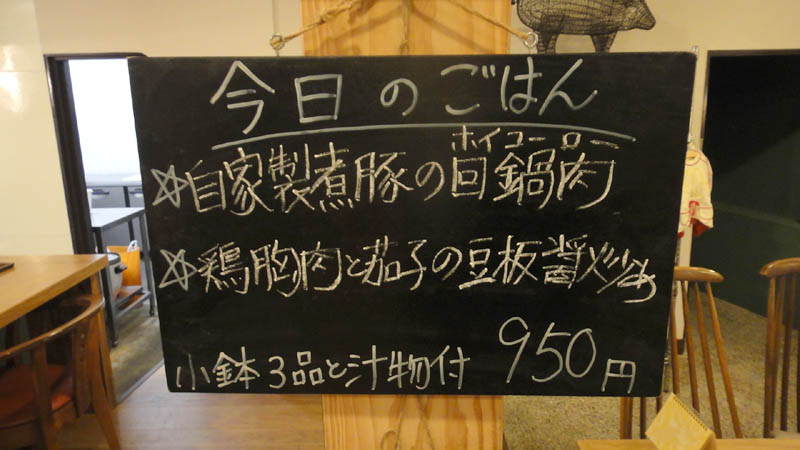 今日のごはん
ホイコーロー
☆自家製煮豚の回鍋肉
☆鶏胸肉と茄子の豆板醤炒め
小鉢3品と汁物付 950円